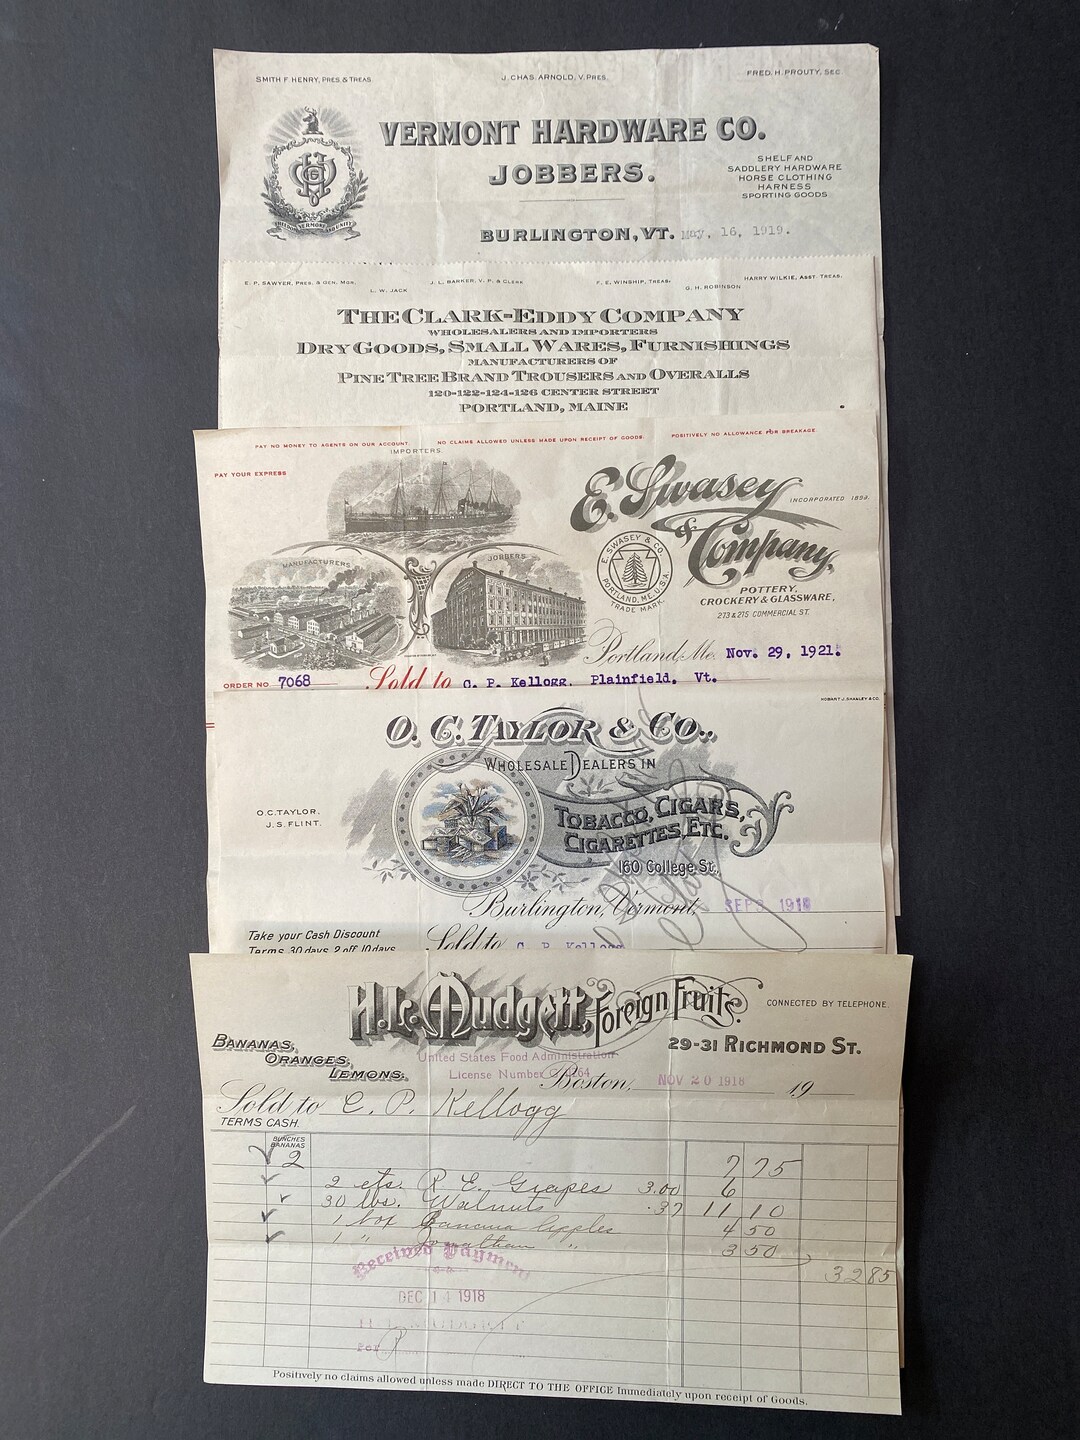 SMITH F. HENRY, PRES. & TREAS.
J. CHAS. ARNOLD, V. PRES.
FRED. H. PROUTY, SEC
VERMONT HARDWARE CO.
JOBBERS.
SHELF AND
SADDLERY HARDWARE
HORSE CLOTHING
HARNESS
SPORTING GOODS
BURLINGTON, VT. May. 16, 1919.
E. P. SAWYER, PRES. & GEN. MGR.
L. W. JACK
J. L. BARKER, V. P. & CLERK
F. E. WINSHIP, TREAS.
G. H. ROBINSON
HARRY WILKIE, ASST. TREAS.
THE CLARK-EDDY COMPANY
WHOLESALERS AND IMPORTERS
DRY GOODS, SMALL WARES, FURNISHINGS
MANUFACTURERS OF
PINE TREE BRAND TROUSERS AND OVERALLS
120-122-124-126 CENTER STREET
PORTLAND, MAINE
PAY NO MONEY TO AGENTS ON OUR ACCOUNT.
NO CLAIMS ALLOWED UNLESS MADE UPON RECEIPT OF GOODS.
POSITIVELY NO ALLOWANCE FOR BREAKAGE.
PAY YOUR EXPRESS
IMPORTERS
MANUFACTURERS
JOBBERS
E. Swasey
& Company,
INCORPORATED
E. SWASEY & CO.
PORTLAND, ME. U.S.A.
TRADE MARK.
POTTERY,
CROCKERY & GLASSWARE,
273 & 275 COMMERCIAL ST.
Portland, Me. Nov. 29, 1921.
ORDER NO. 7068
Sold to C. P. Kellogg, Plainfield, Vt.
O. C. TAYLOR & CO.,
WHOLESALE DEALERS IN
TOBACCO, CIGARS,
CIGARETTES, ETC.
O.C. TAYLOR.
J. S. FLINT.
160 College St.,
Burlington, Vermont, SEP 3
Take your Cash Discount
Terms 30 days, 2 off 10 days
Sold to C. P. Kellogg
H. L. Mudgett, Foreign Fruits.
CONNECTED BY TELEPHONE.
BANANAS,
ORANGES,
LEMONS.
29-31 RICHMOND ST.
United States Food Administration
License Number
Boston, NOV 20 1918 19
Sold to C. P. Kellogg
TERMS CASH.
BUNCHES
BANANAS
2 7 75
2 cts. R E. Grapes 3.00 6
30 lbs. Walnuts .37 11 10
1 box Apples 4 50
1 " Jonathan " 3 50
32 85
Received Payment
DEC 14 1918
H. L. MUDGETT
Positively no claims allowed unless made DIRECT TO THE OFFICE Immediately upon receipt of Goods.